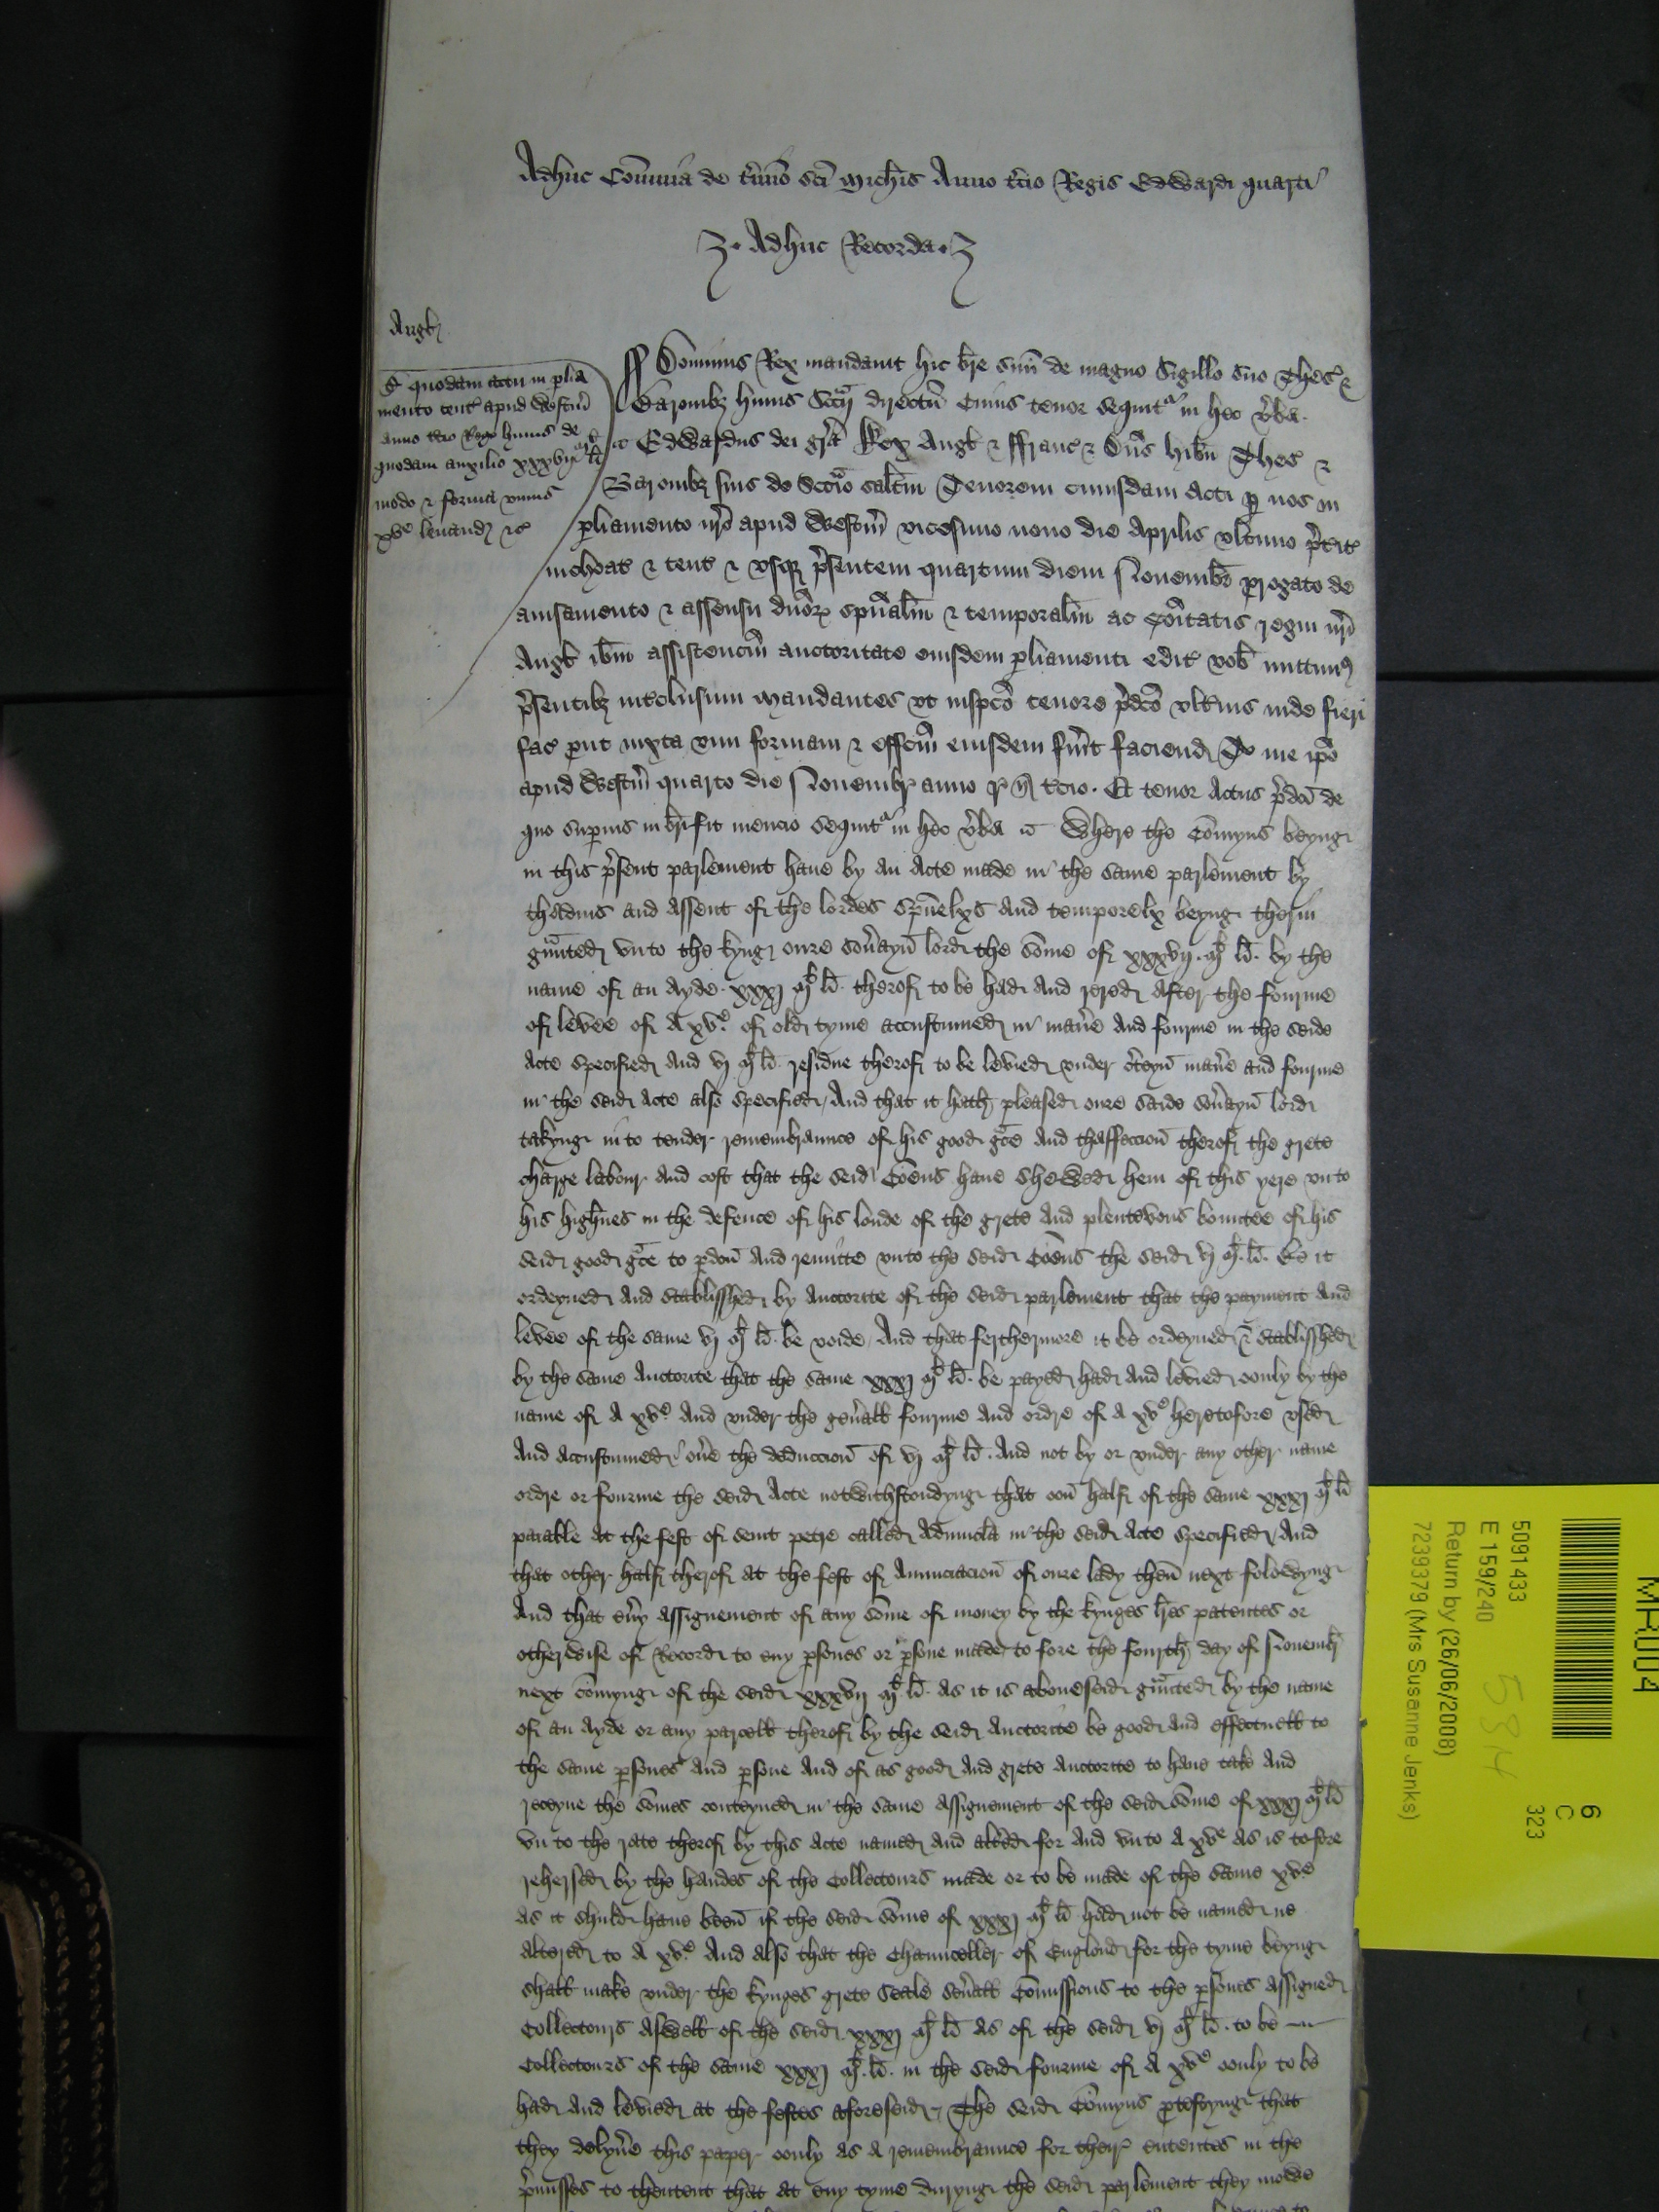 Adhuc Cōmunia de t'mino sc̄i Mich̄is Anno t'cio Regis Edwardi quarti
Adhuc Recorda
Angl'
S' quodam actu in plia
mento tent' apud Westm̄
anno t'cio Regis huius de
quodam auxilio xxxvij Ml li
modo & forma unius
xve levand' &c
Dominus Rex mandavit hic bre suū de magno Sigillo suo Thes' &
Baronibȝ huius Sccij directū Cuius tenor sequit' in hec v'ba
Edwardus dei gr̄a Rex Angl' & ffranc' & Dn̄s hib'n Thes' &
Baronibȝ suis de Sccio salt'm Tenorem cuiusdam acti p nos in
pliamento nr̄o apud Westm̄ vicesimo nono die Aprilis ultimo p't'it'
inchoat' & tent' & usqȝ p'sentem quartum diem Novembr' prorogato de
avisamento & assensu dn̄orȝ sp̄ualiū & temporaliū ac cōitatis regni nr̄i
Angl' ibm̄ assistenciū auctoritate eiusdem pliamenti edit' vob' mittimus
p'sentibȝ interclusum Mandantes ut inspc̄o tenore p'dc̄o ult'ius inde fieri
fac' put iuxta vim formam & effc̄m eiusdem fu'it faciend' T' me ip̄o
apud Westm̄ quarto die Novembr' anno r' n' t'cio. Et tenor Actus p'dc̄i de
quo sup'ius in br̄i fit mencio sequit' in hec v'ba Where the Cōmyns beyng
in this p'sent parlement have by an Acte made in the same parlement by
thadvis and assent of the lordes sp̄uelxs and temporelx beyng therin
gr'nted unto the kyng oure sov'ayn lord the some of xxxvij Ml li. by the
name of an Ayde xxxj Ml li. therof to be had and rered after the fourme
of levee of A xve of old tyme accustumed in man'e and fourme in the seide
Acte specified and vj Ml li. residue therof to be levied under c'teyn man'e and fourme
in the seid Acte also specified, And that it hath pleased oure saide sov'ayn lord
takyng in to tender remembraunce of his good gr̄ce and thaffeccion therof the grete
charge labour and cost that the seid Cōens have shewed hem of this yere unto
his highnes in the defence of his londe of the grete and plentevous bountee of his
seid good gr̄ce to pdon and remitte unto the seid Cōens the seid vj Ml li. be it
ordeyned and stablisshed by auctorite of the seid parlement that the payment and
levee of the same vj Ml li. be voide, And that ferthermore it be ordeyned & stablisshed
by the same auctorite that the same xxxj Ml li. be payed had and levied oonly by the
name of A xve and under the gen'all fourme and ordre of A xve heretofore used
and accustumed ov'e the deduccion of vj Ml li. And not by or under any other name
ordre or fourme the seid Acte notwithstondyng that oon half of the same xxxj Ml li
paiable at the fest of seint petre called Advincla in the seid Acte specified, And
that other half therof at the fest of Annunciacion of oure lady then next folowyng
And that ev'y assignement of any some of money by the kynges lr̄es patentes or
otherwise of Record to eny psones or psone made to fore the fourth day of Novembr'
next comyng of the seid xxxvij Ml li. as it is aboveseid gr'nted by the name
of an Ayde or any parcell therof by the seid auctorite be good and effectuell to
the same psones and psone and of as good and grete auctorite to have take and
receyve the somes conteyned in the same assignement of the seid some of xxxj Ml li
un to the rate therof by this Acte named and alt'ed for and unto A xve as is tofore
rehersed by the handes of the Collectours made or to be made of the same xve
as it shuld have been if the seid some of xxxj Ml li had not be named ne
altered to A xve And also that the Chaunceller of England for the tyme beyng
shall make under the kynges grete Seale sev'all Cōmissions to the psones assigned
Collectours aswell of the seid xxxj Ml li as of the seid vj Ml li. to be
Collectours of the same xxxj Ml li. in the seid fourme of A xve oonly to be
had and levied at the festes aforeseid, The seid Cōmyns ptestyng that
they delyv'e this paper oonly as a remembraunce for their ententes in the
p'misses to thentent that at eny tyme duryng the seid parlement they mowe
MR004
6
C
323
5091433
E 159/240
5314
Return by (26/06/2008)
7239379 (Mrs Susanne Jenks)